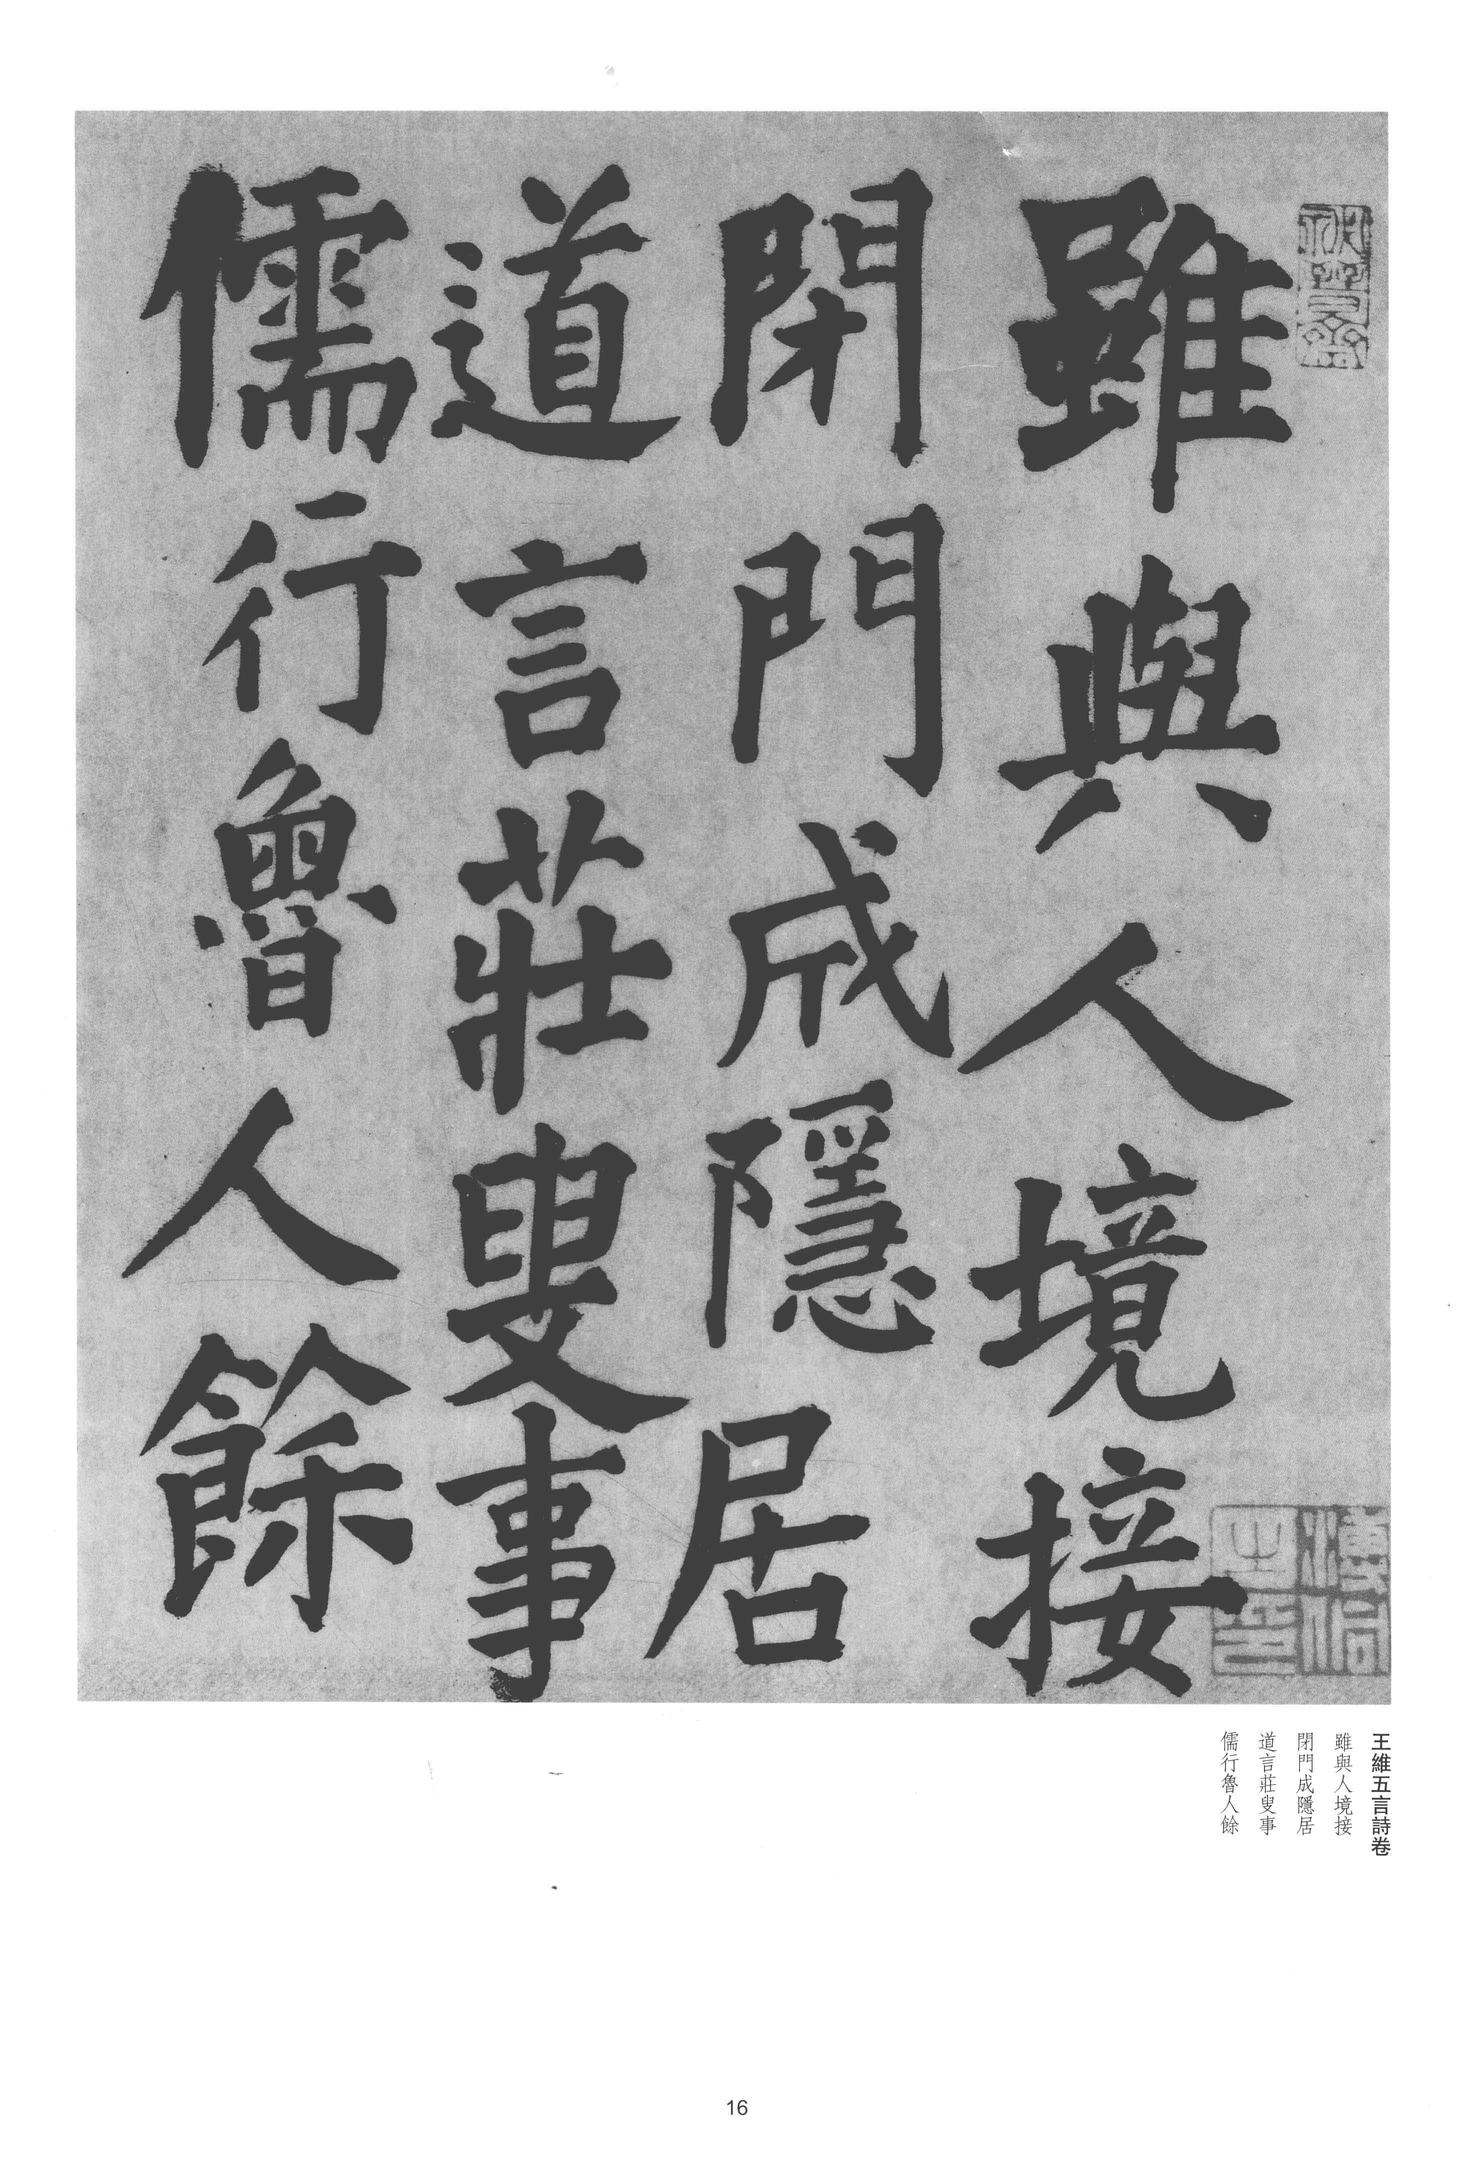 雖與人境接
閉門成隱居
道言莊叟事
儒行魯人餘
王維五言詩卷
雖與人境接
閉門成隱居
道言莊叟事
儒行魯人餘
16